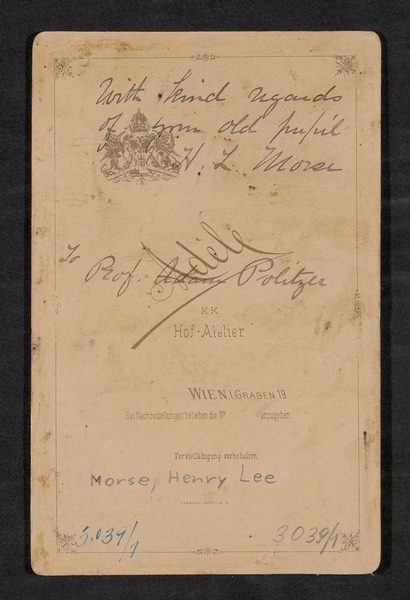 With kind regards
of your old pupil
H. L. Morse
To
Prof. Adam Politzer
Adèle
K.K.
Hof-Atelier
WIEN, I. GRABEN 19
Bei Nachbestellungen belieben die Nº anzugeben
Vervielfältigung vorbehalten
Morse, Henry Lee
3.039/1
3039/1